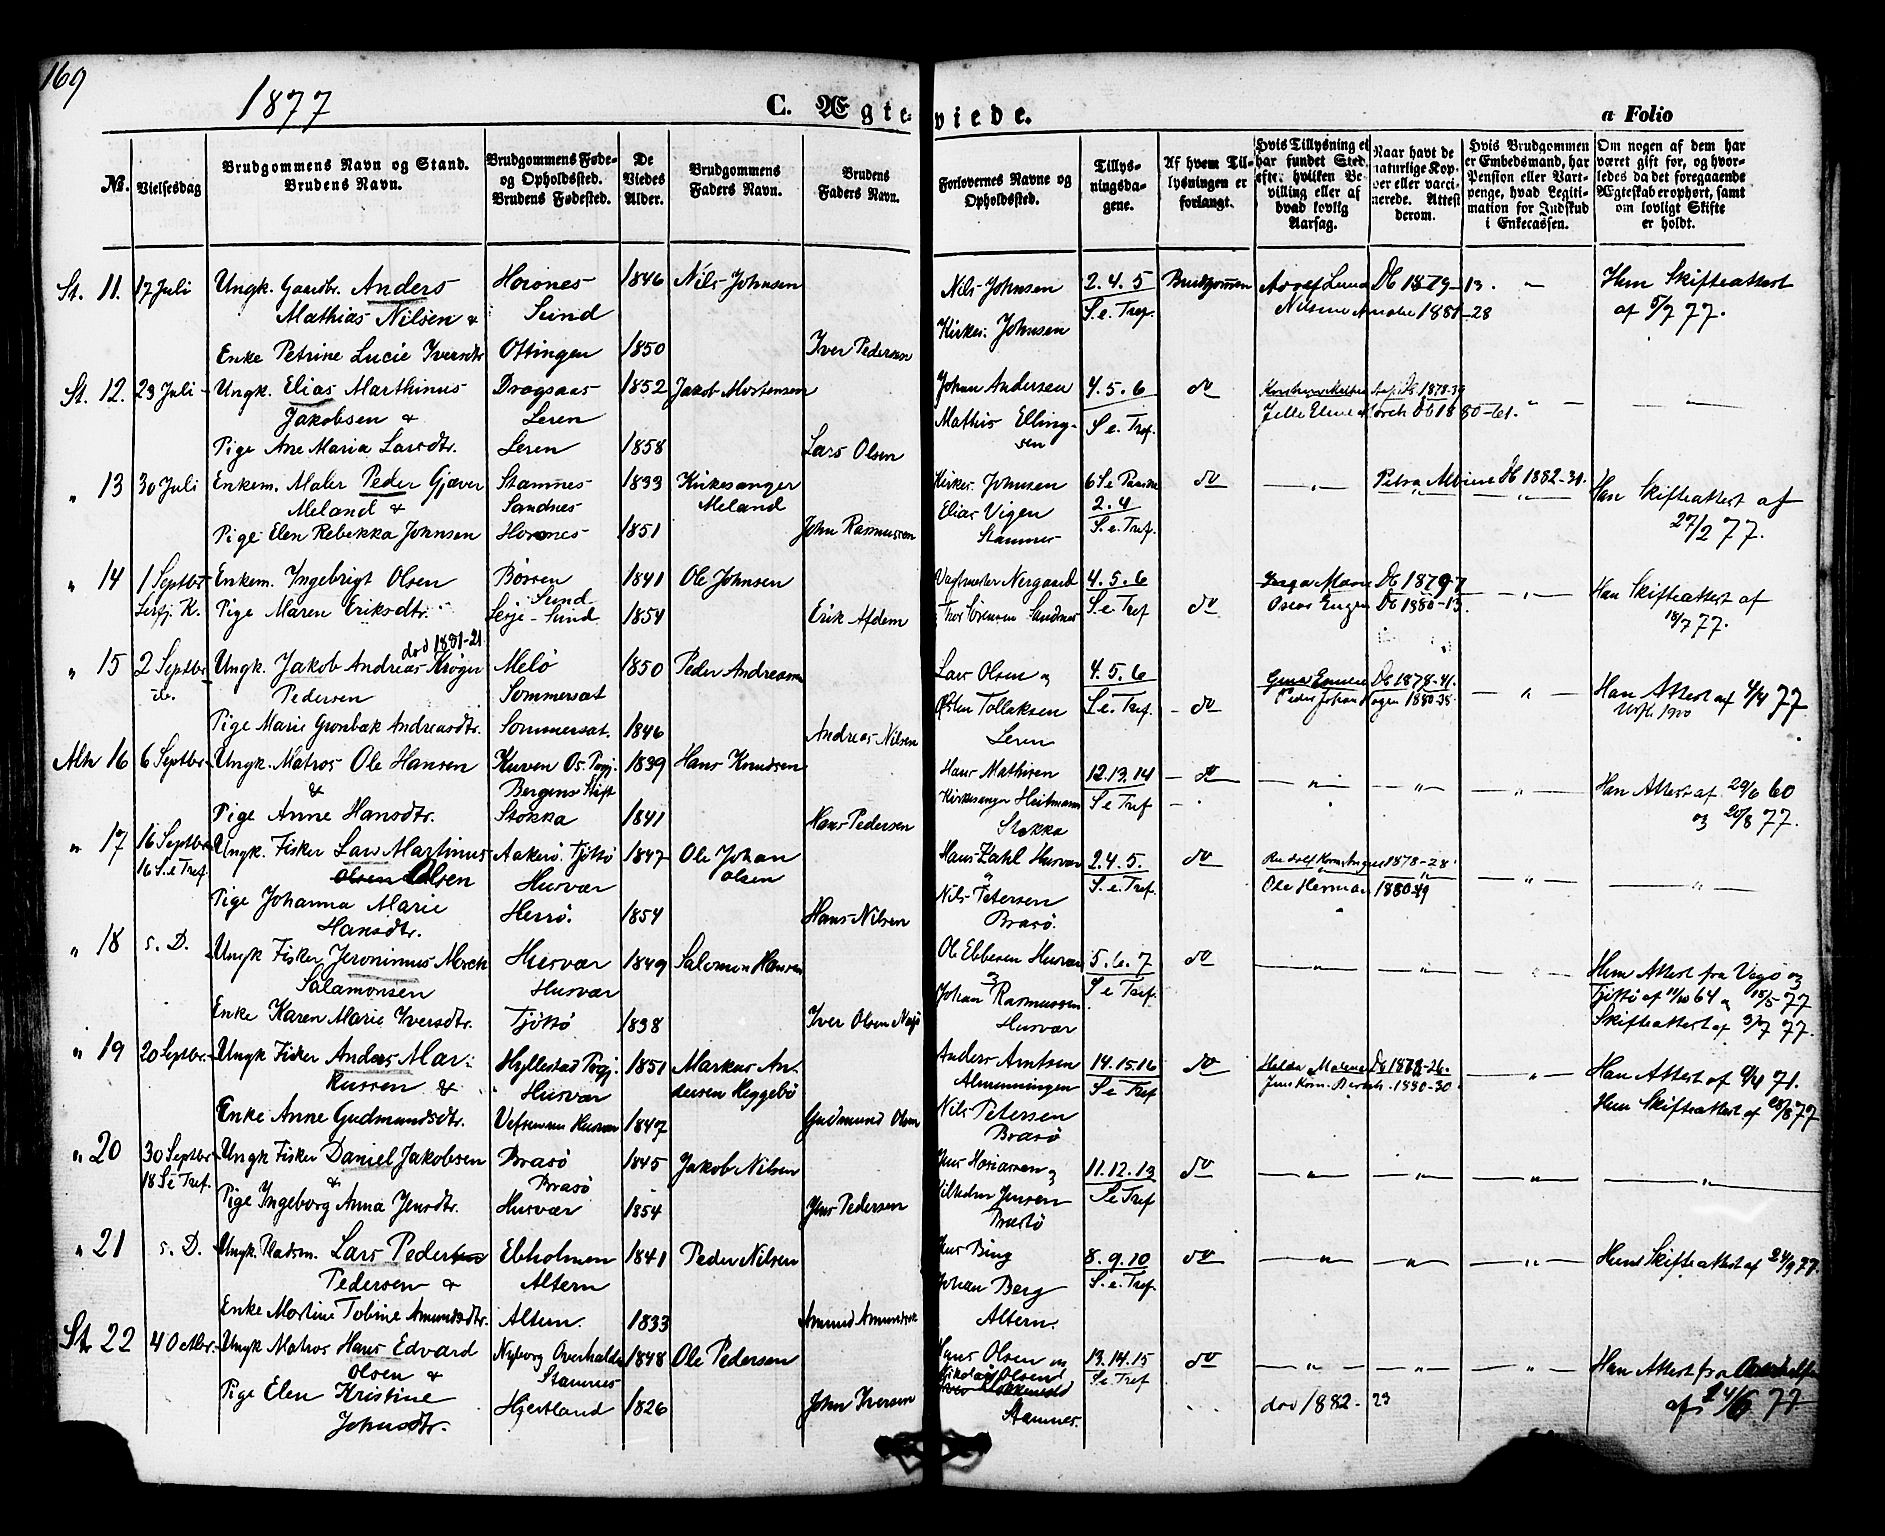 169
1877
C. Ægteviede.
a Folio
№.
Vielsesdag
Brudgommens Navn og Stand.
Brudens Navn.
Brudgommens Føde-
og Opholdssted.
Brudens Fødested.
De
Viedes
Alder.
Brudgommens
Faders Navn.
Brudens
Faders Navn.
Forlovernes Navne og
Opholdssted.
Tillys-
ningsda-
gene.
Af hvem Til-
lysningen er
forlangt.
Hvis Tillysning ei
har fundet Sted,
efter hvilken Be-
villing eller af
hvad lovlig
Aarsag.
Naar havt de
naturlige Kop-
per eller vacci-
nerede. Attest
derom.
Hvis Brudgommen
er Embedsmand, har
Pension eller Vart-
penge, hvad Legiti-
mation for Indskud
i Enkecassen.
Om nogen af dem har
været gift før, og hvor-
ledes da det foregaaende
Ægteskab er ophørt, samt
om lovligt Skifte
er holdt.
St. 11. 17 Juli Ungk. Gaardbr. Anders Horones 1846 Nils Johnsen Nils Johnsen 2. 4. 5 Brudgommen Db 1879-13. " Hun Skifteattest
Mathias Nilsen & Sund Kirkes. Johnsen S. e. Tref. 1881-28 af 5/7 77.
Enke Petrine Lucie Iversdtr Ottingen 1850 Iver Pedersen
St. 12. 23 Juli Ungk. Elias Marthinus Dragsaas 1852 Jakob Mortensen Johan Andersen 4. 5. 6 do 1878-39
Jakobsen & Leren Mathis Elling- S. e. Tref. 1880-61. "
sen
Pige Ane Maria Larsdtr. Leren 1858 Lars Olsen
" 13 30 Juli Enkem. Maler Peder Gjæver Stamnes 1833 Kirkesanger Kirkes. Johnsen 6 S e Paaske do " Petra Albine Db 1882-31. Han Skifteattest af
Meland & Sandnes Meland Elias Vigen 2. 4 27/2 77.
Pige Elen Rebekka Johnsen Horones 1851 John Rasmussen Stamnes S. e. Tref.
" 14 1 Septbr. Enkem. Ingebrigt Olsen Børsen 1841 Ole Johnsen Nergaard 4. 5. 6 Inga Marie Db 1879-7 " Han Skifteattest af
K. Pige Maren Eriksdtr. Sund 1854 Erik Afdem Thor Sørensen Sandnes S. e. Tref do Oscar Eugen Db 1880-13. 18/7 77.
død 1881-21
" 15 2 Septbr. Ungk. Jakob Andreas Krøger Melø 1850 Peder Andreasen Lars Olsen og 4. 5. 6 Db 1878-41. " Han Attest af 4/4 77
Pedersen Sommersæt Tollaksen S. e. Tref. do Peder Johan 1880-38.
Pige Marie Grønbæk Andreasdtr. Sommersæt. 1846 Andreas Nilsen Leren
Altn 16 6 Septbr. Ungk. Matros Ole Hansen Kuven Os Prgj. 1839 Hans Knudsen Hans Mathisen 12. 13. 14 do " " " Han Attest af 29/6 60
& Bergens Stift Kirkesanger Heitmann S e Tref og 20/8 77.
Pige Anne Hansdtr. Stokka 1841 Hans Pedersen Stokka
" 17 16 Septbr. Ungk. Fisker Lars Martinus Aakerø Tjøttø 1847 Ole Johan Hans Zahl Husvær 2. 4. 5. do 1878-28 " "
16 S. e Tref Olsen Olsen Husvær Olsen " S. e. Tref. Ole Herman 1880-49
Pige Johanna Marie Herrø. 1854 Hans Nilsen Nils Petersen
Hansdtr. Brasø.
" 18 s. D. Ungk Fisker Jeronimus Morch Husvær 1849 Salomon Hansen Ole Ebbesen Husvær 5. 6. 7 do " " " Hun Attest fra Vega og
Salamonsen Husvær og S e Tref. Tjøttø af 11/10 64 og 18/5 77
Enke Karen Marie Iversdtr. Tjøttø 1838 Iver Olsen Johan Rasmussen Husvær Skifteattest af 3/7 77.
" 19 20 Septbr. Ungk Fisker Anders Mar- Hyllestad Prgj. 1851 Markus An- Anders Arntsen 14. 15. 16 do Db 1878-26. " Han Attest af 9/4 71.
kussen & Husvær dersen Heggebø Almenningen S e Tref 1880-30. Hun Skifteattest af 28/8 77
Enke Anne Gudmundsdtr. Vefsen Husvær 1847 Gudmund Olsen Nils Petersen
Brasø
" 20 30 Septbr. Ungk Fisker Daniel Jakobsen Brasø 1845 Jakob Nilsen og 11. 12. 13 do " " " "
18 S e Tref. & Brasø Vilhelm Jensen S e Tref
Pige Ingeborg Anna Jensdtr. Husvær 1854 Jens Pedersen Brasø
" 21 s. D. Ungk. Pladsm. Lars Pedersen Ebholmen 1841 Peder Nilsen Jens Bing 8. 9. 10 do " " " Hun Skifteattest af 24/9 77.
Pedersen & Altern Johan Berg S. e. Tref.
Enke Mortine Tobine Amundsdtr. Altern. 1833 Amund Amundsen Altern.
St 22 4 Octbr. Ungk Matros Hans Edvard Nyborg Overhalden 1848 Ole Pedersen Hans Olsen og 13. 14. 15 do " " " Han Attest fra
Olsen & Stamnes Nikolay Olsen S. e. Tref
Pige Elen Kristine Hjertland 1826 John Iversen Stamnes. død 1882-23 af 24/6 77
Johnsdtr.